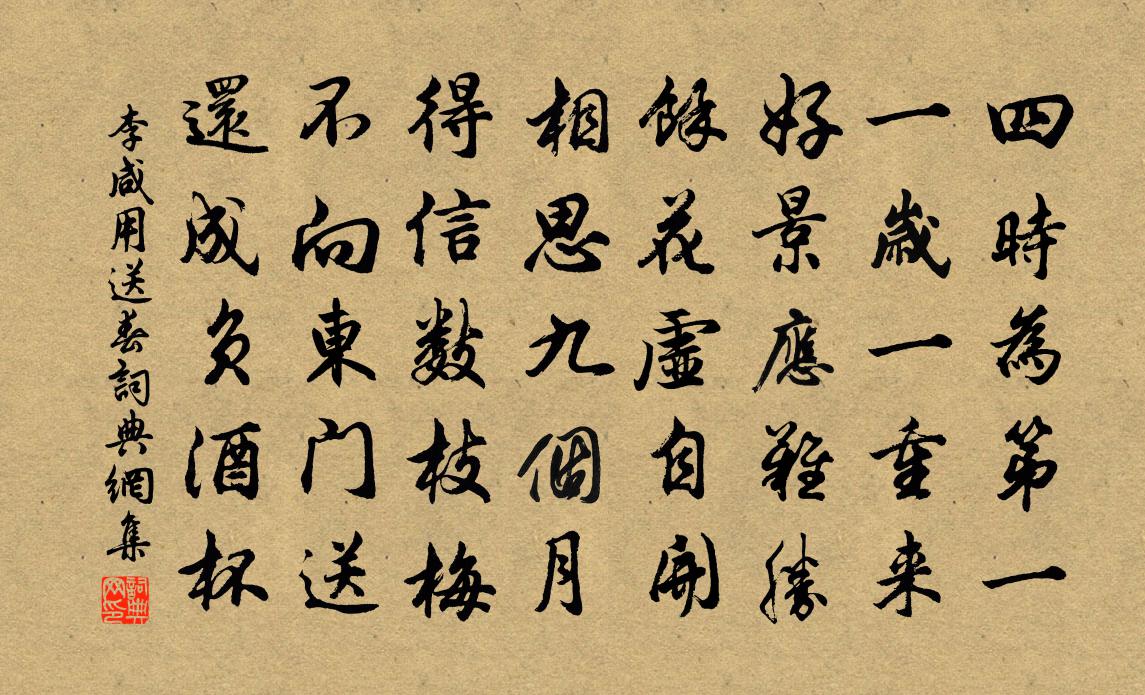 四時為第一
一歲一重来
好景應難勝
餘花虛自開
相思九個月
得信數枝梅
不向東門送
還成負酒杯
李咸用送春詞典網集
詞典网印